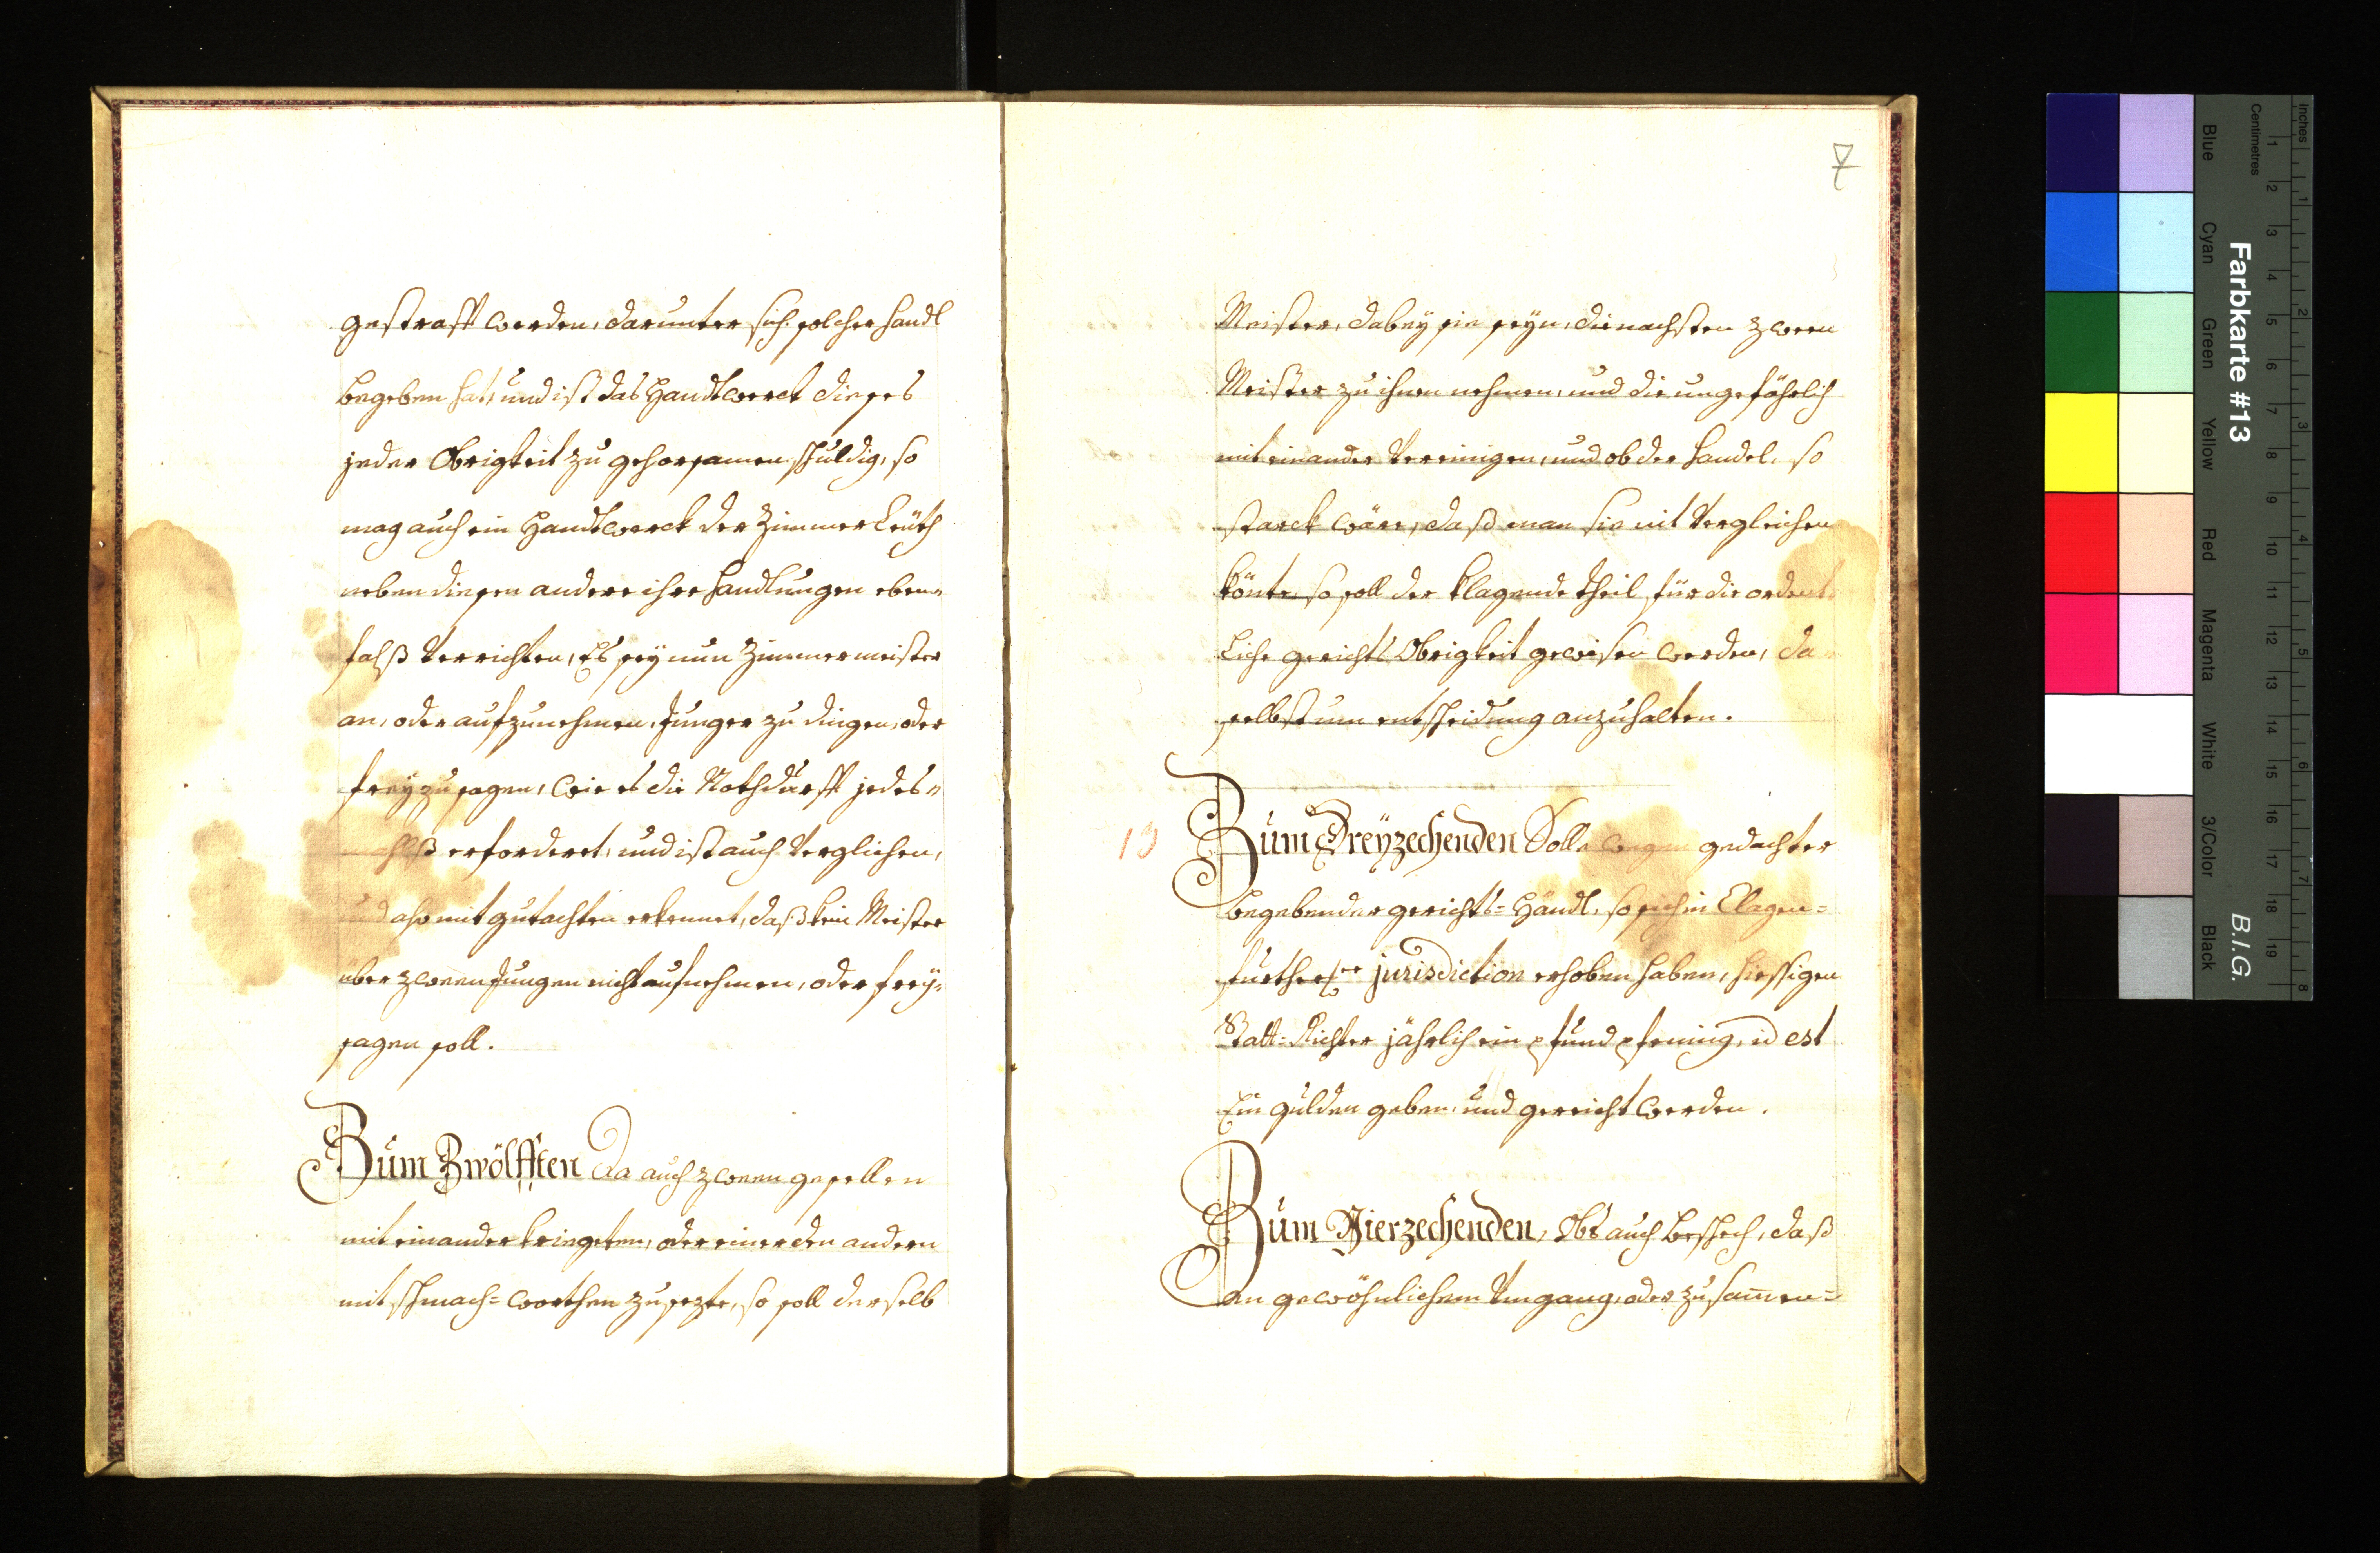 gestrafft werden, darunter sich solcher handl
begeben hat, und ist das Handtwerckh dieses
jeder Obrigkeit zu gehorsamen schuldig, so
mag auch ein Handtwerck der Zimmer Leüth
neben diesen andere ihre handlungen eben=
falß verrichten, Es sey nun Zimmermeister
an, oder aufzunehmen, Junger zu dingen, oder
freyzusagen, wie es die Nothdurfft jedes=
mahlß erforderet, und ist auch verglichen,
und also mit gutachten erkennet, daß kein Meister
über zween Jungen nicht aufnehmen, oder frey=
sagen soll.
Zum Zwölfften Da auch zween gesellen
mit einander kriegeten, oder einer den andern
mit schmach= worthen zusezte, so soll derselb
7
Meister, dabey sie seyn, die nachsten zween
Meister zu ihnen nehmen, und die ungefährlich
mit einander vereinigen, und ob der handel, so
starck wäre, daß man sie nit vergleichen
könte, so soll der klagende theil für die ordent
liche gerichts Obrigkeit gewisen werden, da
selbst um entscheidung anzuhalten.
13
Zum Dreÿzechenden Solle wegen gedachter
begebender gerichts= Händl, so sich in Clagen=
further jurisdiction erhoben haben, hiessigen
Statt= Richter jährlich ein pfund pfening, id est
Ein gulden geben, und gereicht werden.
Zum Vierzechenden, Obs auch beschech, daß
in gewöhnlichem Umgang, oder zusam̄en=
Farbkarte #13
B.I.G.
Inches
Centimetres
1 2 3 4 5 6 7 8 9 10 11 12 13 14 15 16 17 18 19
1 2 3 4 5 6 7 8
Blue
Cyan
Green
Yellow
Red
Magenta
White
3/Color
Black